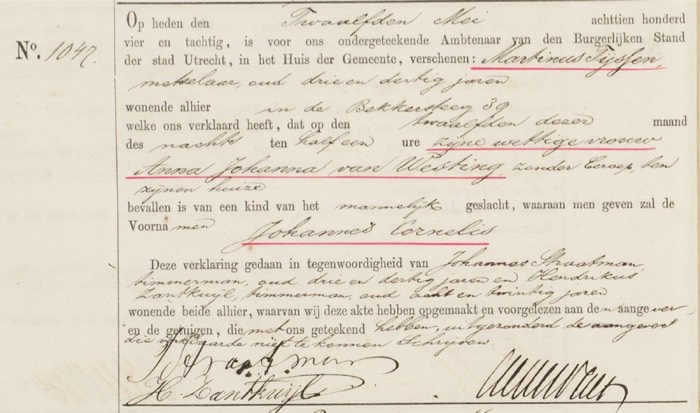 Op heden den Twaalfden Mei achttien honderd
vier en tachtig, is voor ons ondergeteekende Ambtenaar van den Burgerlijken Stand
N°. 1047. der stad Utrecht, in het Huis der Gemeente, verschenen: Martinus Tijssen,
metselaar, oud drie en dertig jaren
wonende alhier in de Bekkersteeg 39
welke ons verklaard heeft, dat op den twaalfden dezer maand
des nachts ten half een ure zijne wettige vrouw
Anna Johanna van Westing, zonder beroep, ten
zijnen huize
bevallen is van een kind van het mannelijk geslacht, waaraan men geven zal de
Voorna men Johannes Cornelis
Deze verklaring gedaan in tegenwoordigheid van Johannes Straatman
timmerman, oud drie en dertig jaren en Hendrikus
Zantkuijl, timmerman, oud acht en twintig jaren
wonende beide alhier, waarvan wij deze akte hebben opgemaakt en voorgelezen aan de n aange ver
en de getuigen, die met ons geteekend hebben, uitgezonderd de aangever
die verklaarde niet te kennen schrijven.
J Straatman
H. Zantkuijl